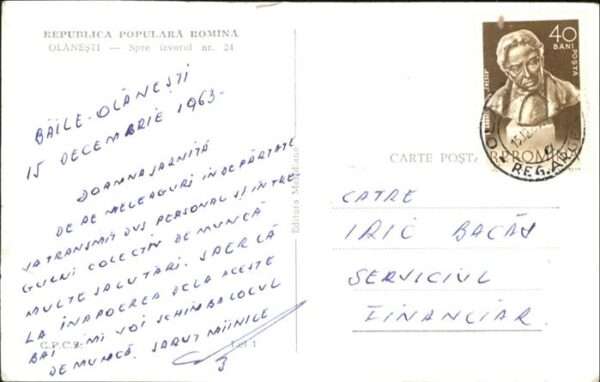 REPUBLICA POPULARĂ ROMÎNĂ
OLĂNEȘTI — Spre izvorul nr. 24
BĂILE-OLĂNEȘTI
15 DECEMBRIE 1963.
DOAMNA
DE PE MELEAGURI ÎNDEPĂRTATE
VĂ TRANSMIT DVS PERSONAL ȘI ÎNTRE-
GULUI COLECTIV DE MUNCĂ
MULTE SALUTĂRI.
LA ÎNAPOEREA DELA ACESTE
BĂI ÎMI VOI SCHIMBA LOCUL
DE MUNCĂ. SĂRUT MÎINILE
G.P.C.
Editura Meridiane
CARTE POȘTALĂ
40
BANI
POSTA
R.P.ROMINA
CATRE
IRIC BACĂU
SERVICIUL
FINANCIAR.